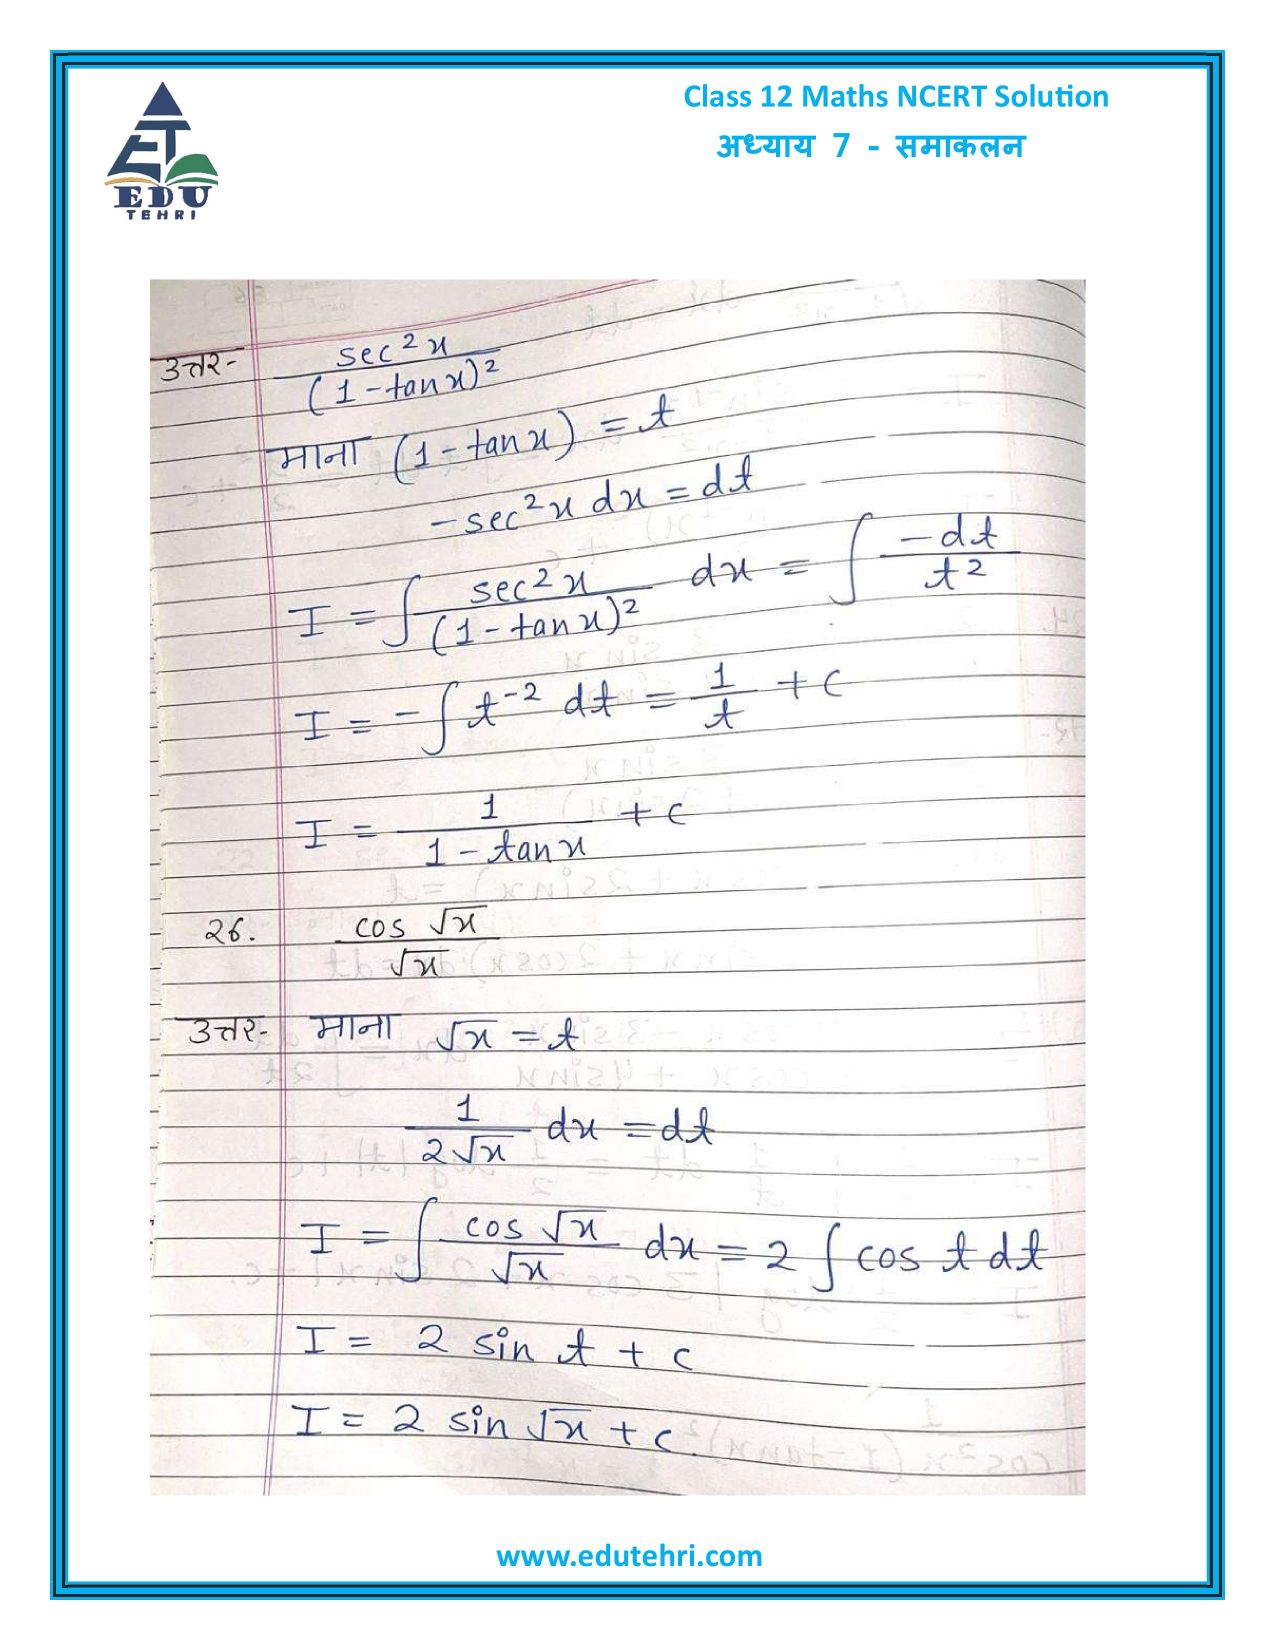 Class 12 Maths NCERT Solution
अध्याय 7 - समाकलन
EDU
TEHRI
उत्तर- sec²x / (1-tanx)²
माना (1-tanx) = t
-sec²x dx = dt
I = ∫ sec²x / (1-tanx)² dx = ∫ -dt / t²
I = -∫ t⁻² dt = 1/t + c
I = 1 / (1-tanx) + c
२६. cos √x / √x
उत्तर- माना √x = t
1 / 2√x dx = dt
I = ∫ cos √x / √x dx = 2 ∫ cos t dt
I = 2 sin t + c
I = 2 sin √x + c.
www.edutehri.com